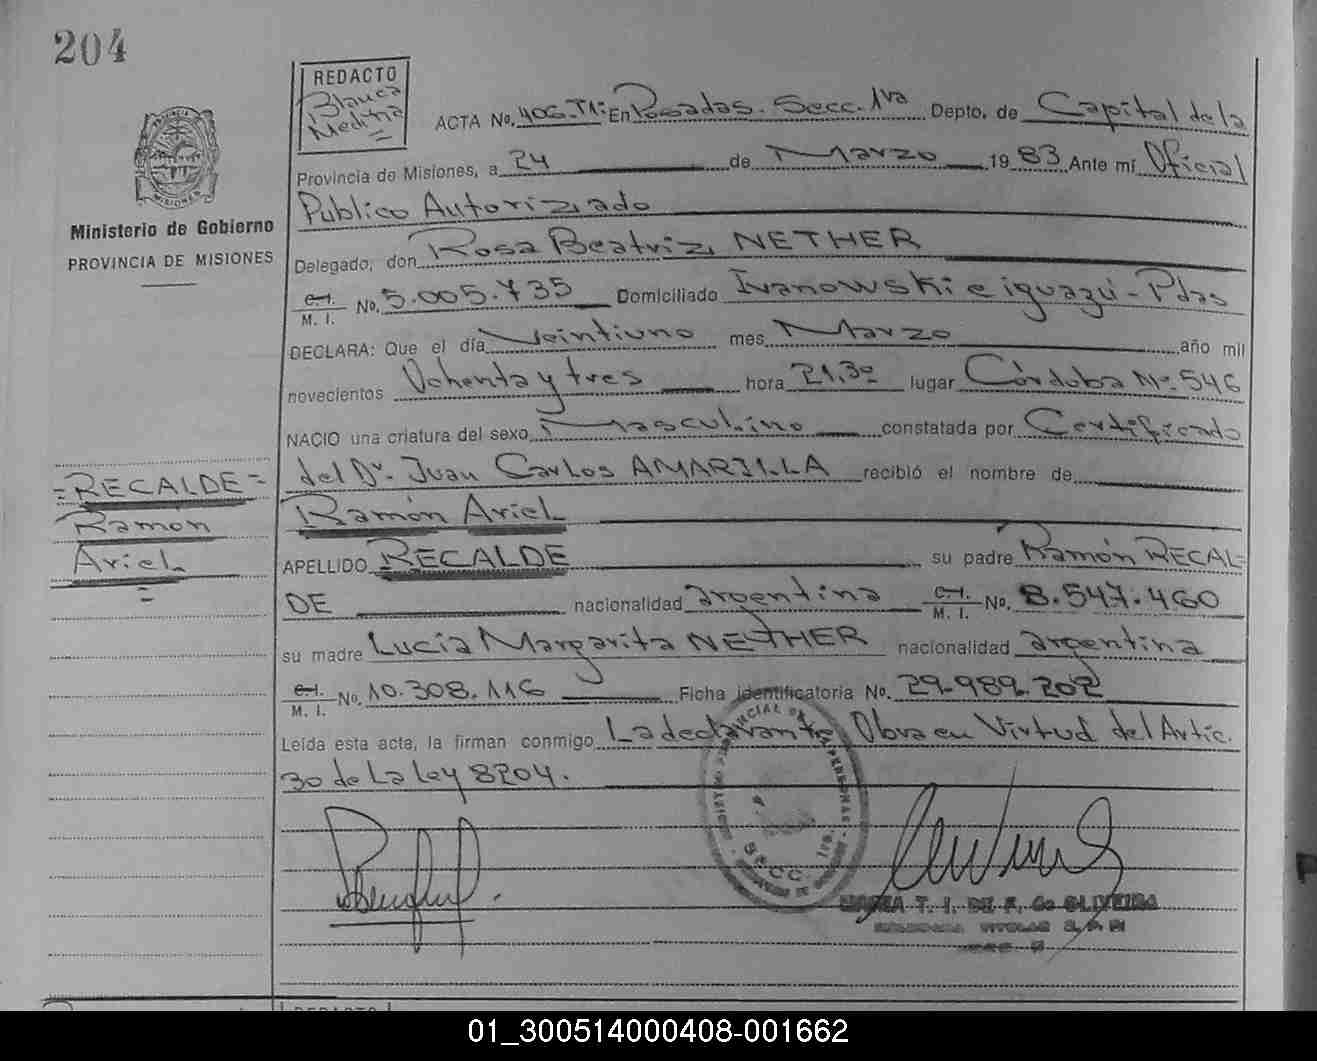 204
REDACTO
Blanca
Medina
ACTA No. 406-T1: En Posadas. Secc. 1ra Depto. de Capital de la
Provincia de Misiones, a 24 de Marzo 1983 Ante mí Oficial
Publico Autorizado
Delegado, don Rosa Beatriz NETHER
C.I.
M. I. No. 5.005.735 Domiciliado Ivanowski e iguazú - Pdas
DECLARA: Que el día Veintiuno mes Marzo año mil
novecientos Ochenta y tres hora 21.30 lugar Córdoba No. 546
NACIO una criatura del sexo Masculino constatada por Certificado
del Dr. Juan Carlos AMARILLA recibió el nombre de
Ramón Ariel
APELLIDO RECALDE su padre Ramón RECAL=
DE nacionalidad argentina C.I.
M. I. No. 8.547.460
su madre Lucía Margarita NETHER nacionalidad argentina
C.I.
M. I. No. 10.308.116 Ficha identificatoria No. 29.989.202
Leída esta acta, la firman conmigo La declarante Obra en Virtud del Artic.
30 de La Ley 8204.
MISIONES
Ministerio de Gobierno
PROVINCIA DE MISIONES
=RECALDE=
Ramón
Ariel
=
SECC. 1ra.
MARIA T. I. DE F. de OLIVEIRA
REDACTO
01_300514000408-001662